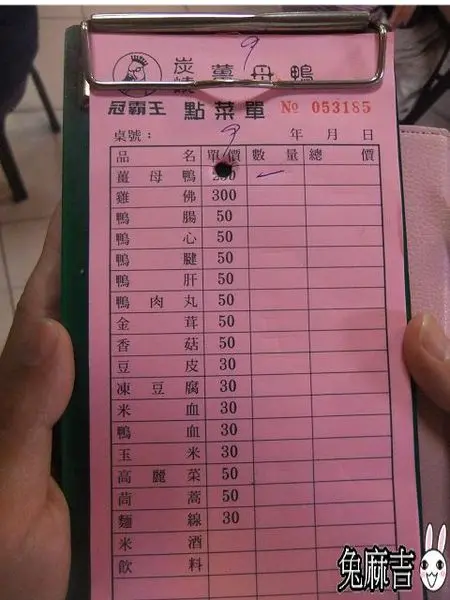 9
炭燒 薑母鴨
冠霸王 點菜單 № 053185
桌號： 9 年 月 日
品名 單價 數量 總價
薑母鴨
雞佛 300
鴨腸 50
鴨心 50
鴨腱 50
鴨肝 50
鴨肉丸 50
金茸 50
香菇 50
豆皮 30
凍豆腐 30
米血 30
鴨血 30
玉米 30
高麗菜 50
茼蒿 50
麵線 30
米酒
飲料
兔麻吉